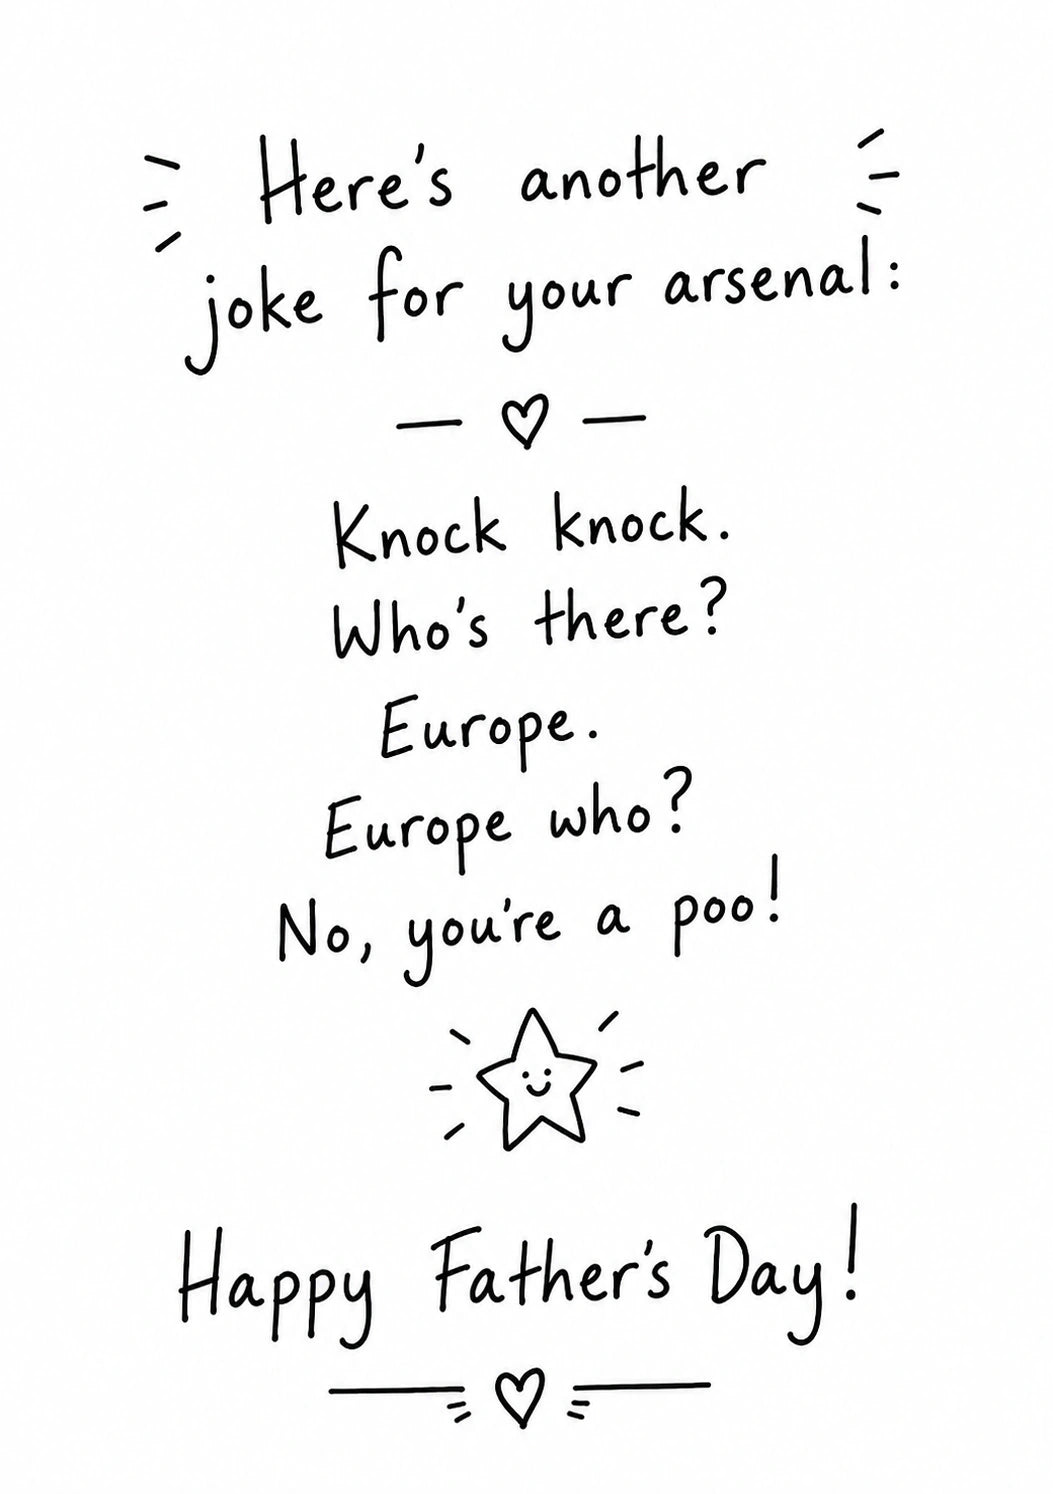 Here's another
joke for your arsenal:
Knock knock.
Who's there?
Europe.
Europe who?
No, you're a poo!
Happy Father's Day!